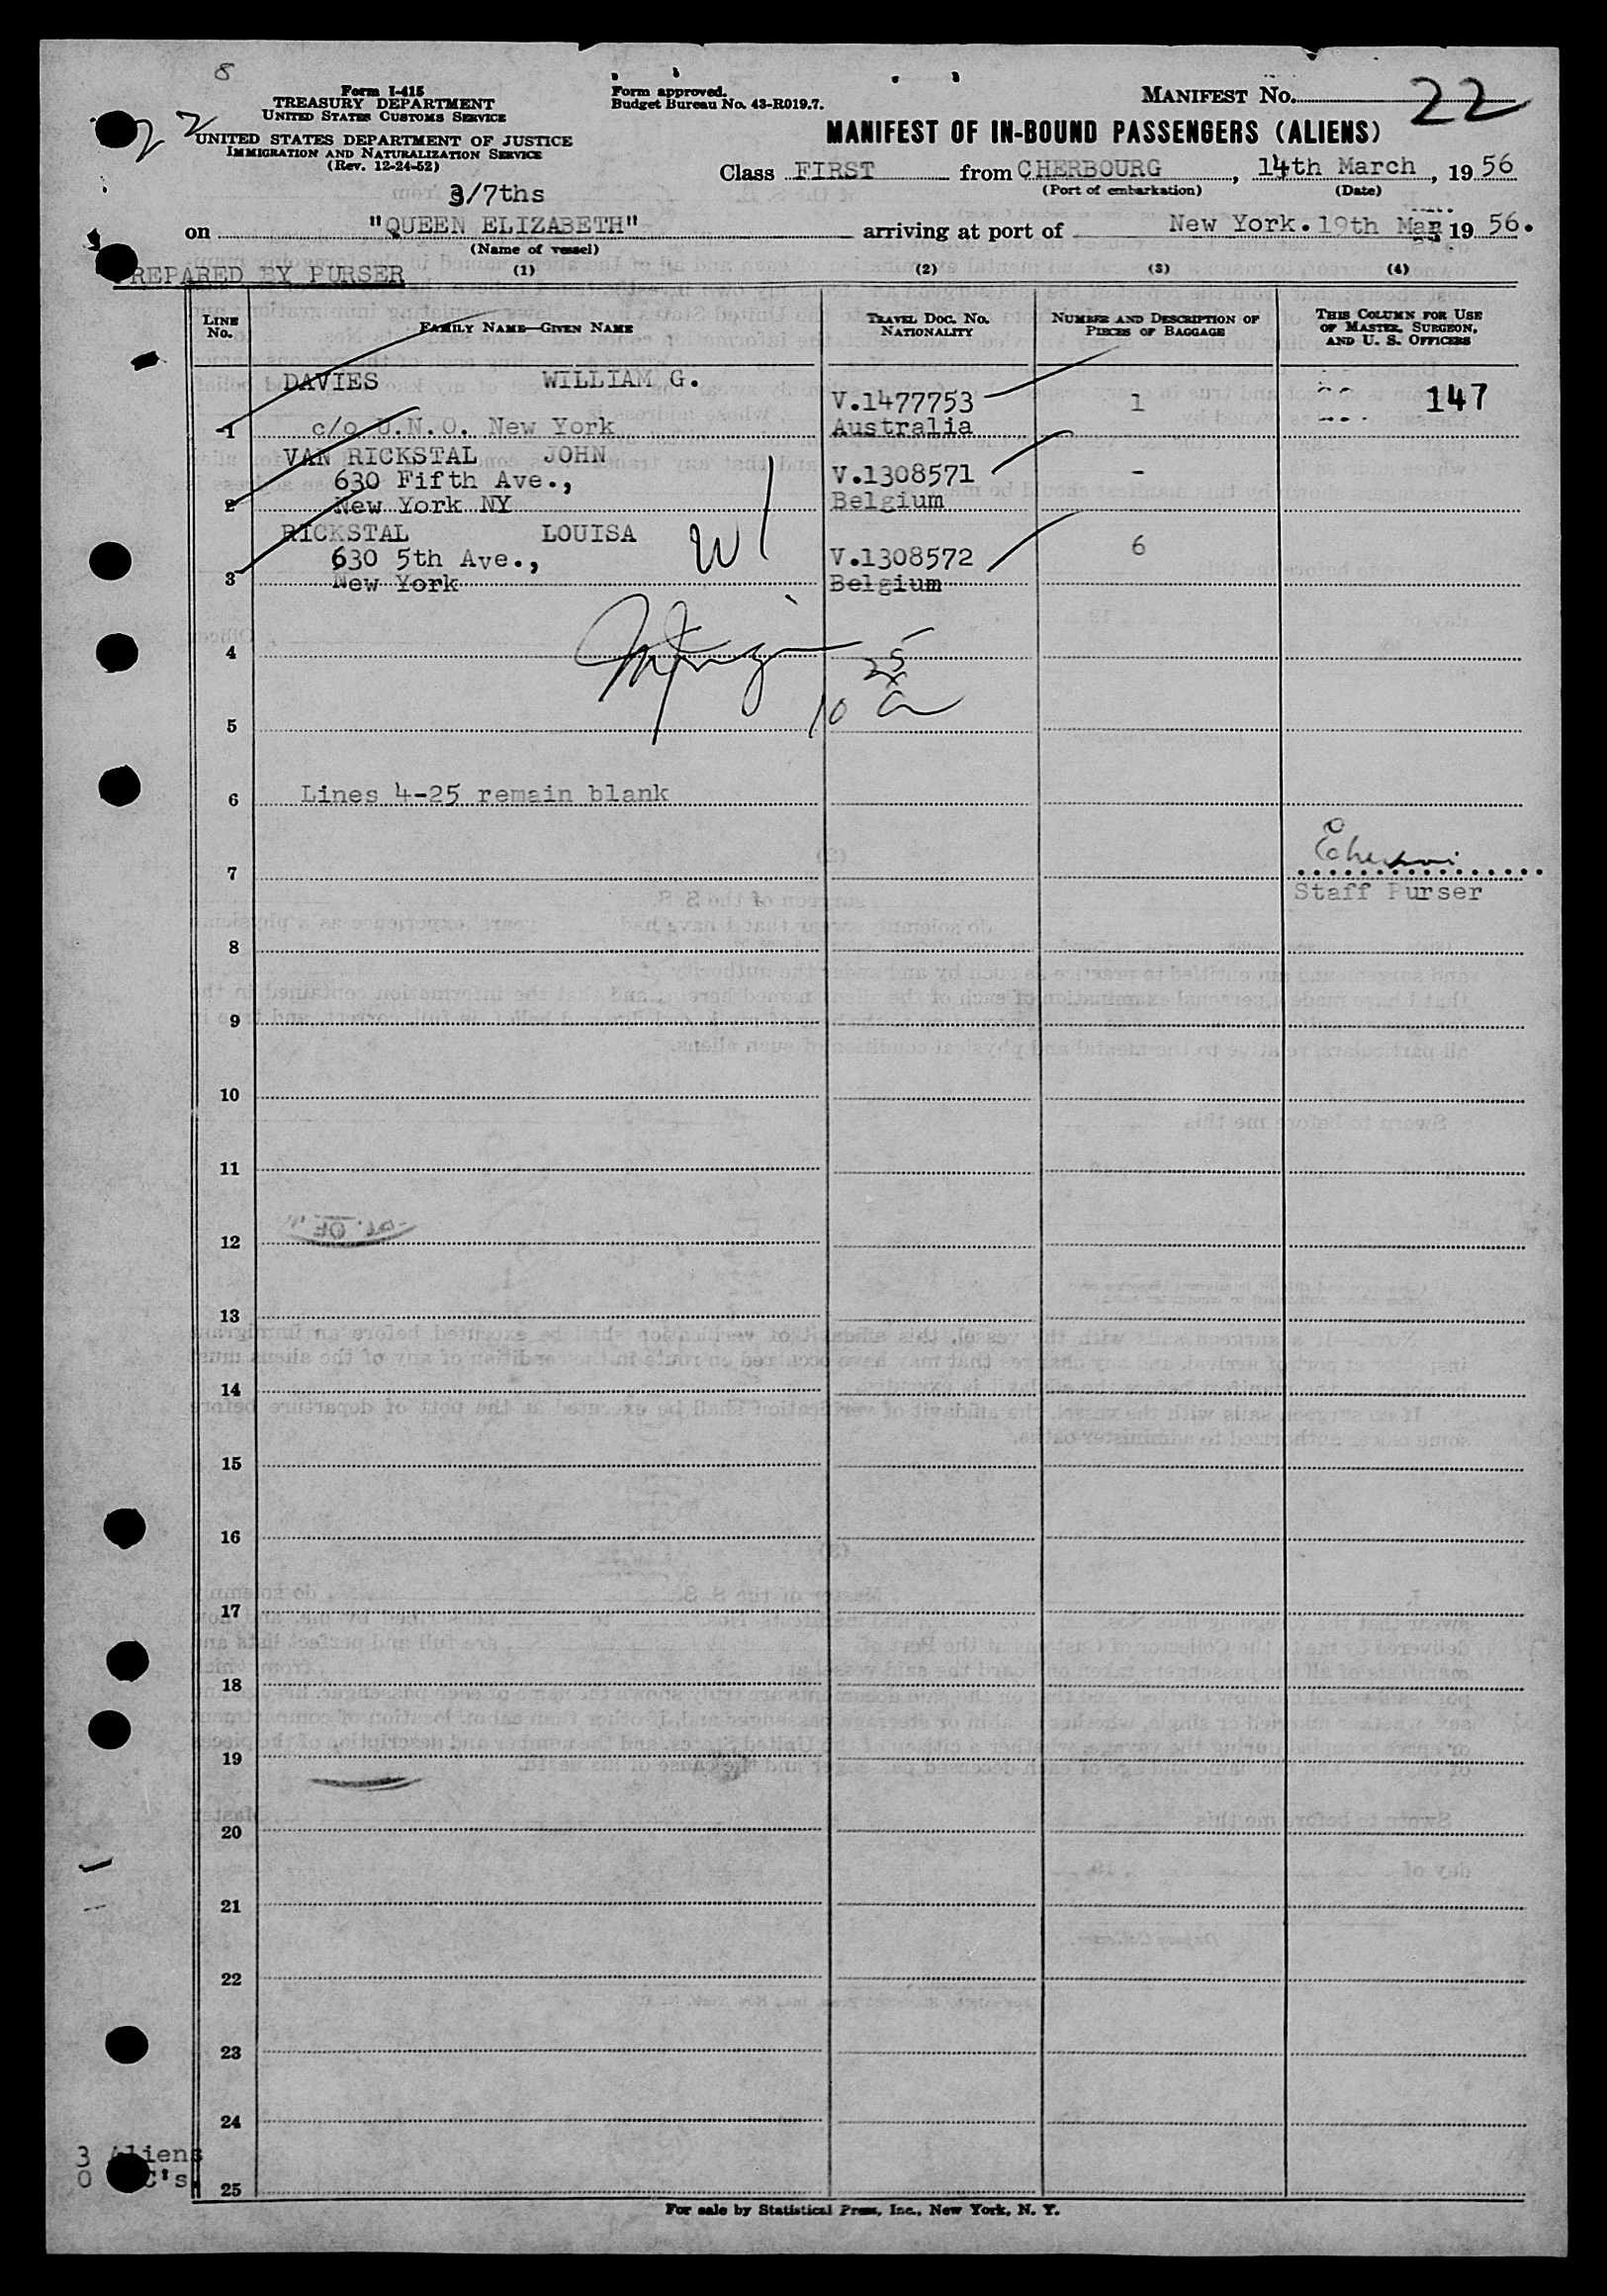 8
Form I-415
TREASURY DEPARTMENT
UNITED STATES CUSTOMS SERVICE
UNITED STATES DEPARTMENT OF JUSTICE
IMMIGRATION AND NATURALIZATION SERVICE
(Rev. 12-24-52)
Form approved.
Budget Bureau No. 43-R019.7.
MANIFEST No. 22
22
MANIFEST OF IN-BOUND PASSENGERS (ALIENS)
Class FIRST from CHERBOURG, 14th March, 1956
(Port of embarkation) (Date)
3/7ths
on "QUEEN ELIZABETH" arriving at port of New York. 19th Mar 1956.
(Name of vessel)
PREPARED BY PURSER (1) (2) (3) (4)
LINE No. FAMILY NAME—GIVEN NAME TRAVEL DOC. NO. NATIONALITY NUMBER AND DESCRIPTION OF PIECES OF BAGGAGE THIS COLUMN FOR USE OF MASTER, SURGEON, AND U. S. OFFICERS
DAVIES WILLIAM G. V.1477753 1 147
1 c/o U.N.O. New York Australia
VAN RICKSTAL JOHN
630 Fifth Ave., V.1308571 -
2 New York NY Belgium
RICKSTAL LOUISA
630 5th Ave., V.1308572 6
3 New York Belgium
W
4 25
5 10
6 Lines 4-25 remain blank
7
Staff Purser
8
9
10
11
12
13
14
15
16
17
18
19
20
21
22
23
24
3 Aliens
0 C's
25
For sale by Statistical Press, Inc., New York, N. Y.